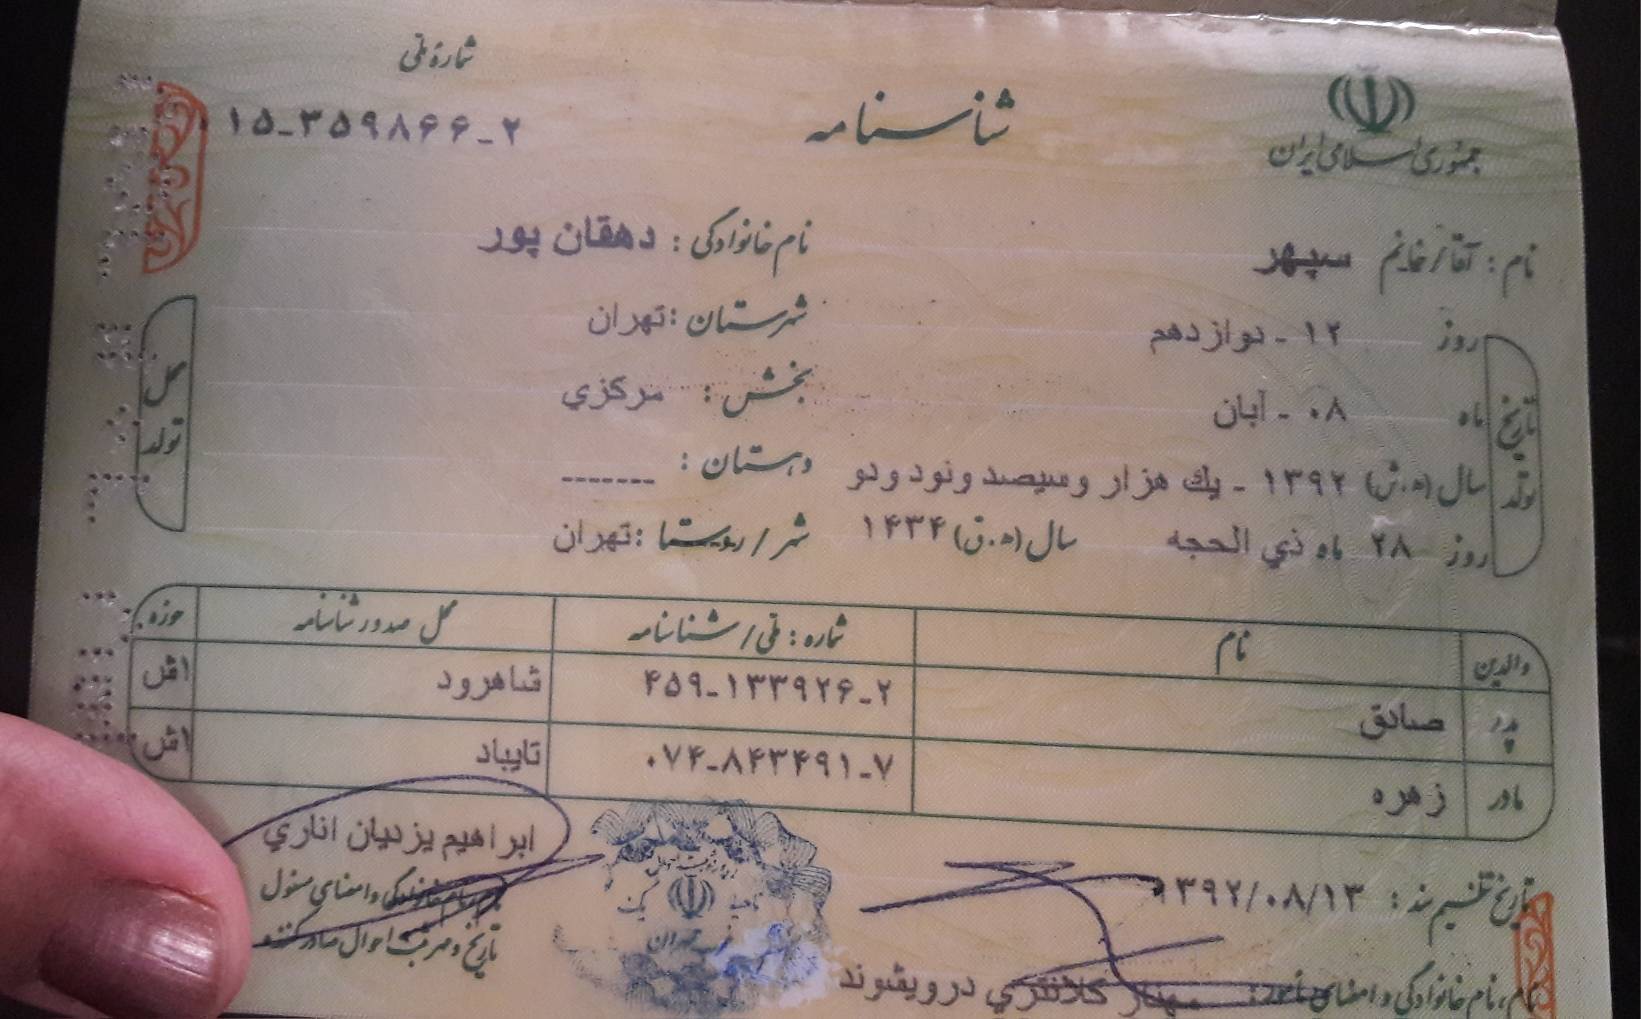 جمهوری اسلامی ایران
شناسنامه
شماره ملی
۱۵-۳۵۹۸۶۶-۲
نام : آقا/خانم سپهر نام خانوادگی : دهقان پور
تاریخ تولد
روز ۱۲ - دوازدهم
ماه ۰۸ - آبان
سال (ه.ش) ۱۳۹۲ - يك هزار وسيصد ونود ودو
روز ۲۸ ماه ذي الحجه سال (ه.ق) ۱۴۳۴
محل تولد
شهرستان : تهران
بخش : مركزي
دهستان : -------
شهر / روستا : تهران
والدین نام شماره : ملی / شناسنامه محل صدور شناسنامه حوزه
پدر صادق ۴۵۹-۱۳۳۹۲۶-۲ شاهرود اش
مادر زهره ۰۷۴-۸۴۳۴۹۱-۷ تایباد اش
تاریخ تنظیم سند : ۱۳۹۲/۰۸/۱۳
نام، نام خانوادگی و امضای مأمور : كلانتري درويشوند
ابراهيم يزديان اناري
نام، نام خانوادگی و امضای مسئول
تهران